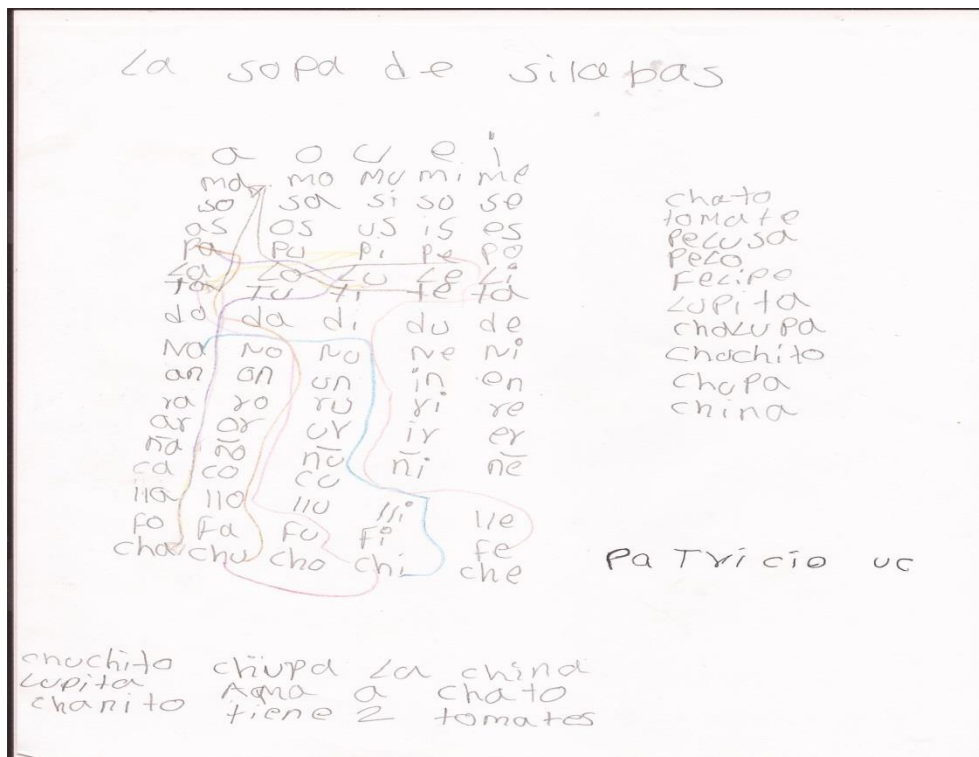 La sopa de silabas
a o u e i
ma mo mu mi me
so sa si so se
as os us is es
pa pu pi pe po
La Lo Lu Le Li
To Tu ti te ta
do da di du de
Na No nu Ne Ni
an on un in en
ra ro ru ri re
ar or ur ir er
ña ño ñu ñi ñe
ca co cu
lla llo llu lli lle
Fo Fa Fu Fi Fe
cha chu cho chi che
chato
tomate
PeLusa
PeLo
FeLipe
LUPita
chaLupa
Chuchito
Chupa
china
PaTricio uc
chuchito chupa La china
Lupita Ama a chato
chanito tiene 2 tomates